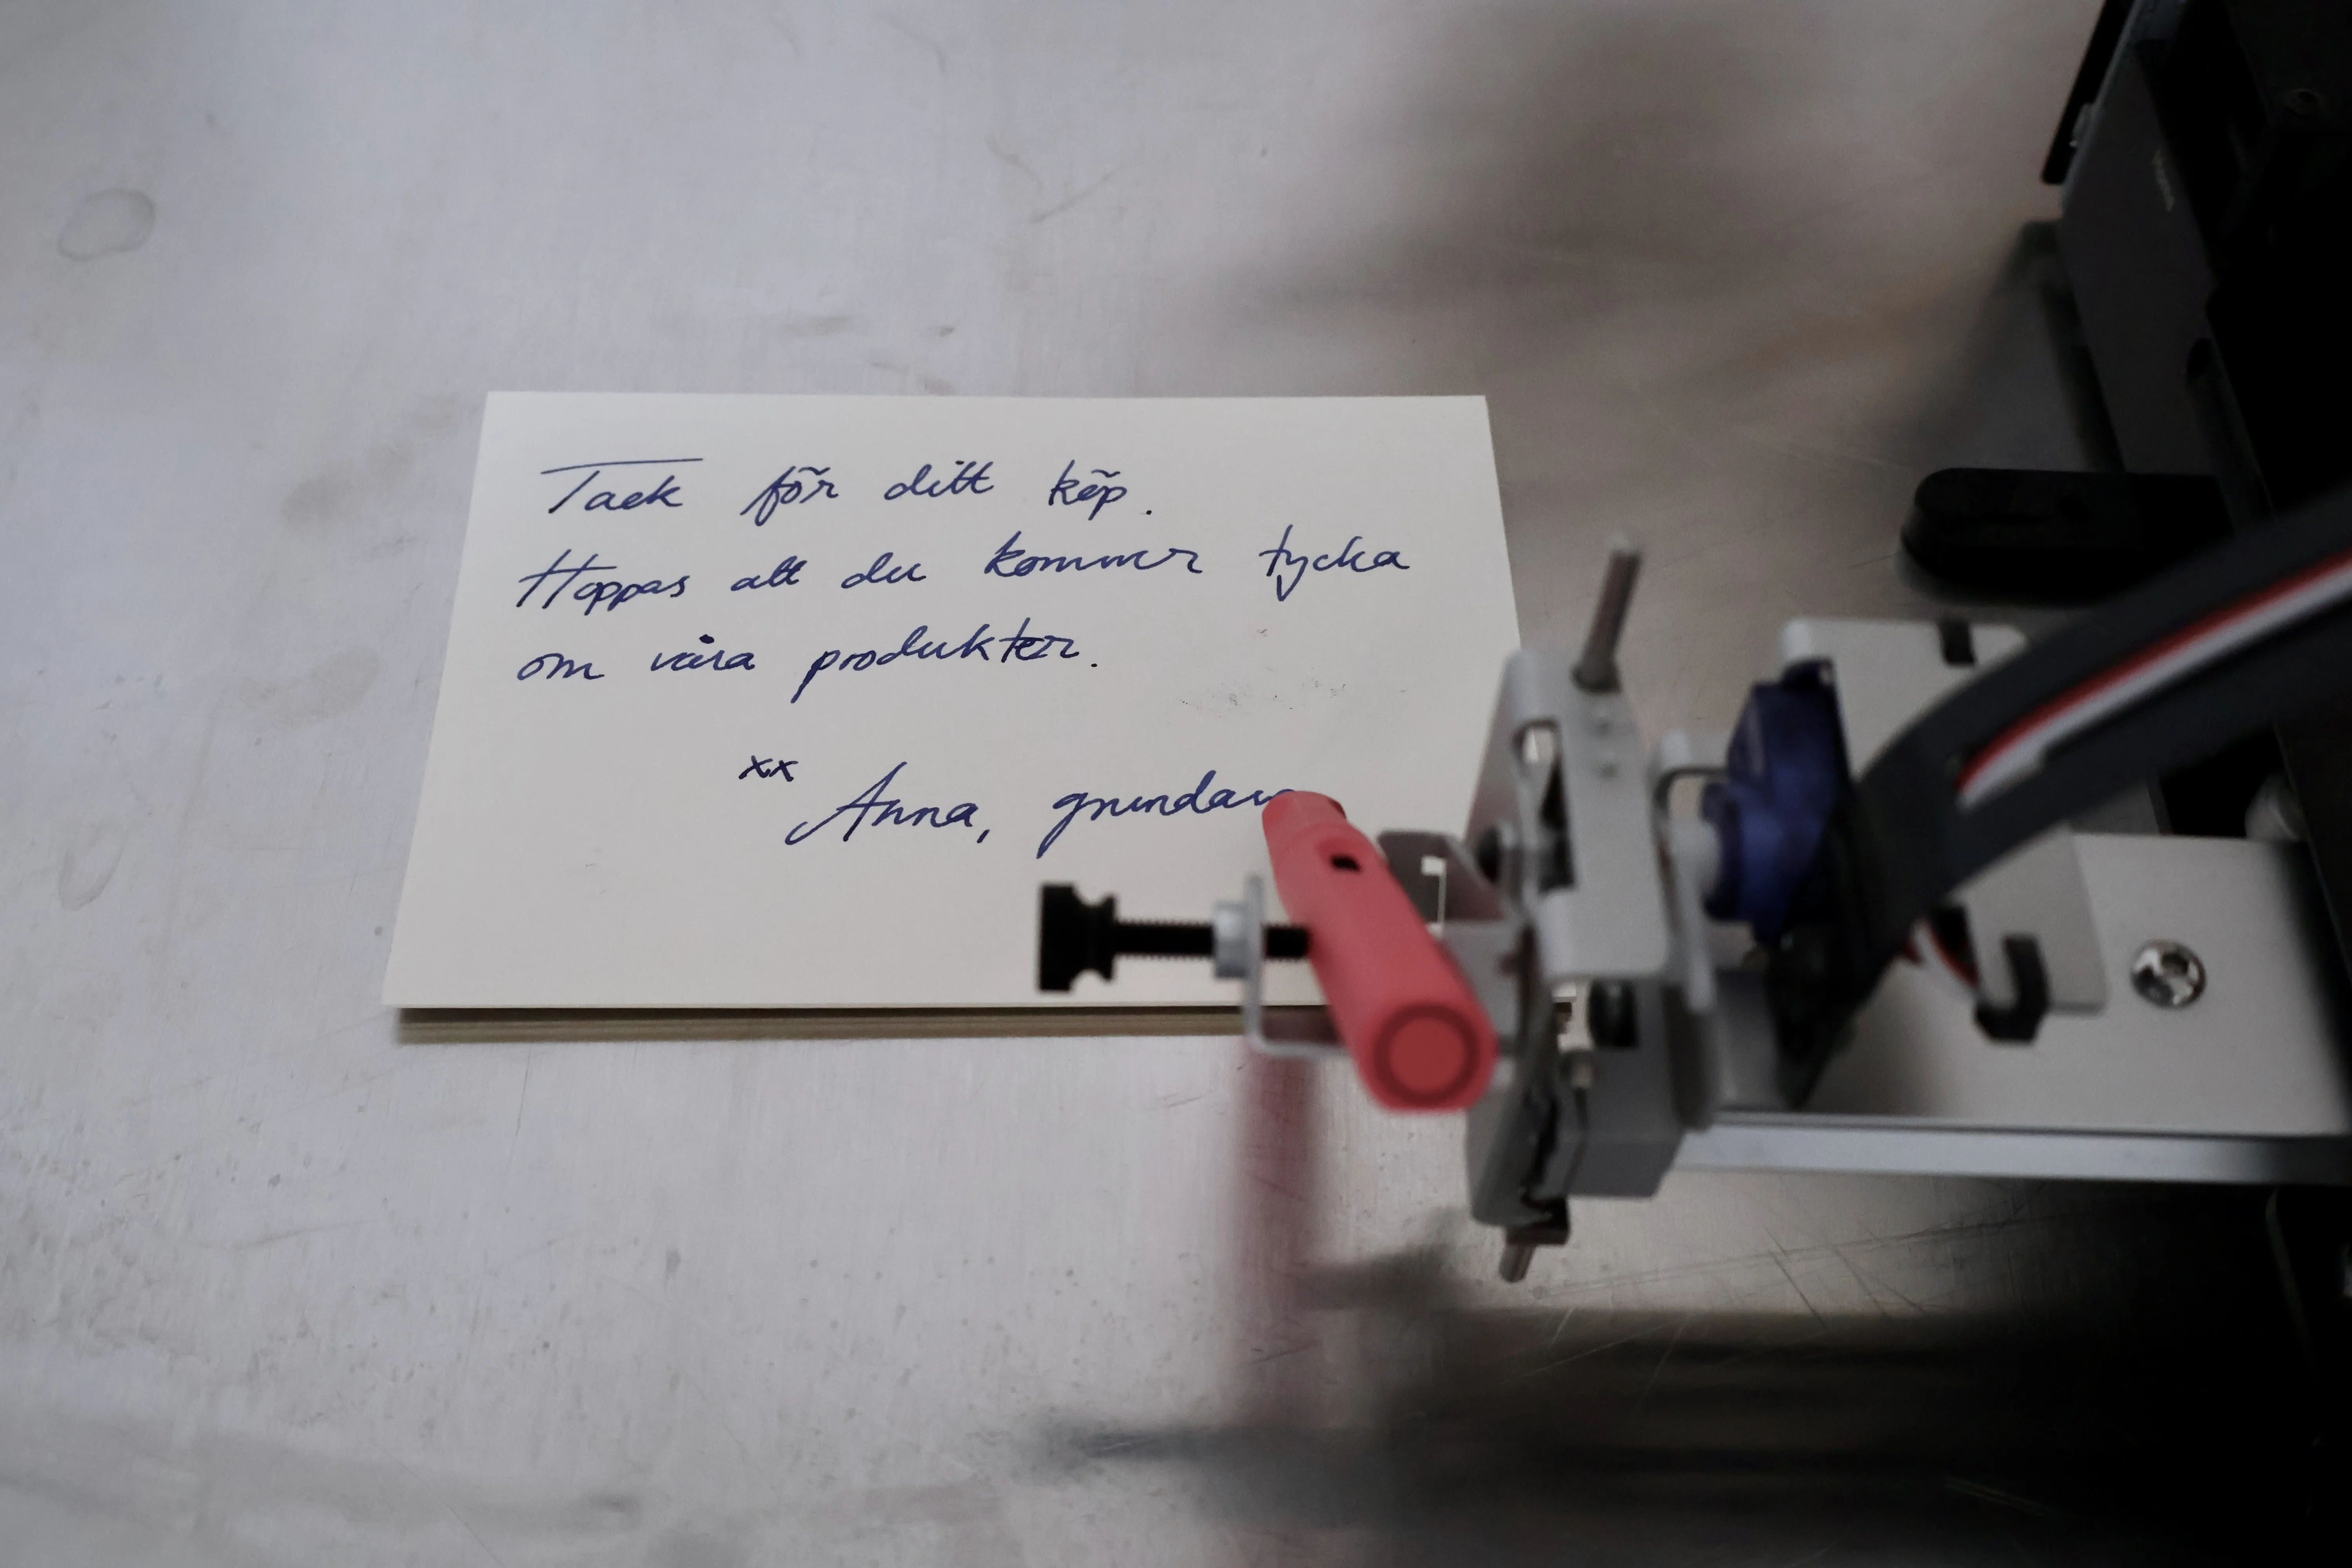 Tack för ditt köp.
Hoppas att du kommer tycka
om våra produkter.
xx
Anna, grundare